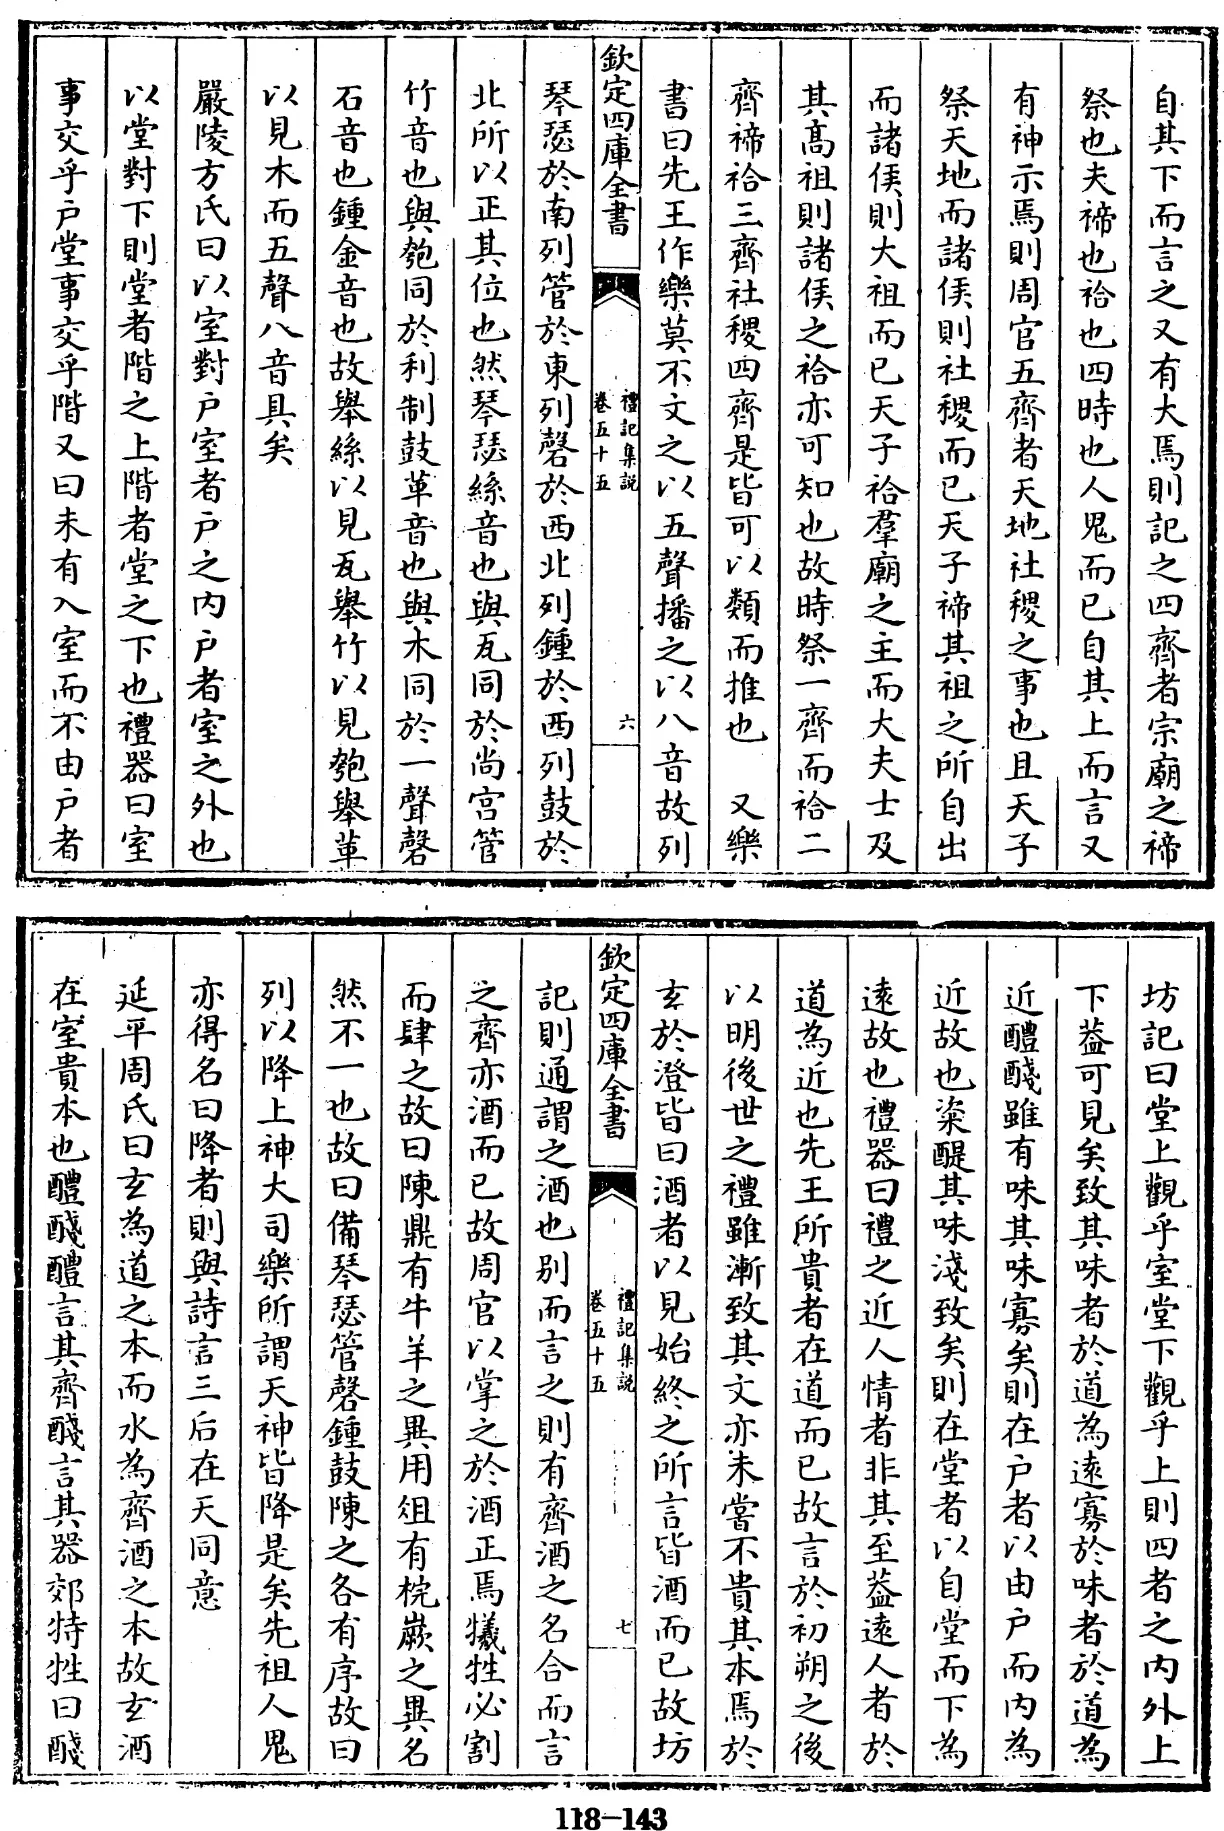 自其下而言之又有大焉則記之四齊者宗廟之禘
祭也夫禘也祫也四時也人鬼而已自其上而言又
有神示焉則周官五齊者天地社稷之事也且天子
祭天地而諸侯則社稷而已天子禘其祖之所自出
而諸侯則大祖而已天子祫羣廟之主而大夫士及
其髙祖則諸侯之祫亦可知也故時祭一齊而祫二
齊禘祫三齊社稷四齊是皆可以類而推也 又樂
書曰先王作樂莫不文之以五聲播之以八音故列
欽定四庫全書
禮記集説
卷五十五
六
琴瑟於南列管於東列磬於西北列鍾於西列鼓於
北所以正其位也然琴瑟絲音也與瓦同於尚宫管
竹音也與匏同於利制鼓革音也與木同於一聲磬
石音也鍾金音也故舉絲以見瓦舉竹以見匏舉革
以見木而五聲八音具矣
嚴陵方氏曰以室對户室者户之内户者室之外也
以堂對下則堂者階之上階者堂之下也禮器曰室
事交乎户堂事交乎階又曰未有入室而不由户者
坊記曰堂上觀乎室堂下觀乎上則四者之内外上
下葢可見矣致其味者於道為逺寡於味者於道為
近醴醆雖有味其味寡矣則在户者以由户而内為
近故也粢醍其味淺致矣則在堂者以自堂而下為
逺故也禮器曰禮之近人情者非其至葢逺人者於
道為近也先王所貴者在道而已故言於初朔之後
以明後世之禮雖漸致其文亦未嘗不貴其本焉於
玄於澄皆曰酒者以見始終之所言皆酒而已故坊
欽定四庫全書
禮記集説
卷五十五
七
記則通謂之酒也别而言之則有齊酒之名合而言
之齊亦酒而已故周官以掌之於酒正焉犧牲必割
而肆之故曰陳鼎有牛羊之異用俎有梡嶡之異名
然不一也故曰備琴瑟管磬鍾鼓陳之各有序故曰
列以降上神大司樂所謂天神皆降是矣先祖人鬼
亦得名曰降者則與詩言三后在天同意
延平周氏曰玄為道之本而水為齊酒之本故玄酒
在室貴本也醴醆醴言其齊醆言其器郊特牲曰醆
118-143